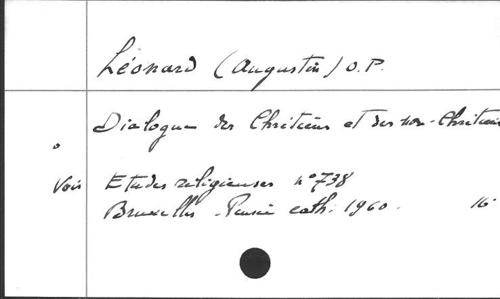 Léonard (Augustin) O.P.
Dialogue des Chrétiens et des non-Chrétiens
Voir Etudes religieuses n° 738
Bruxelles - Pensée cath. 1960. 16°